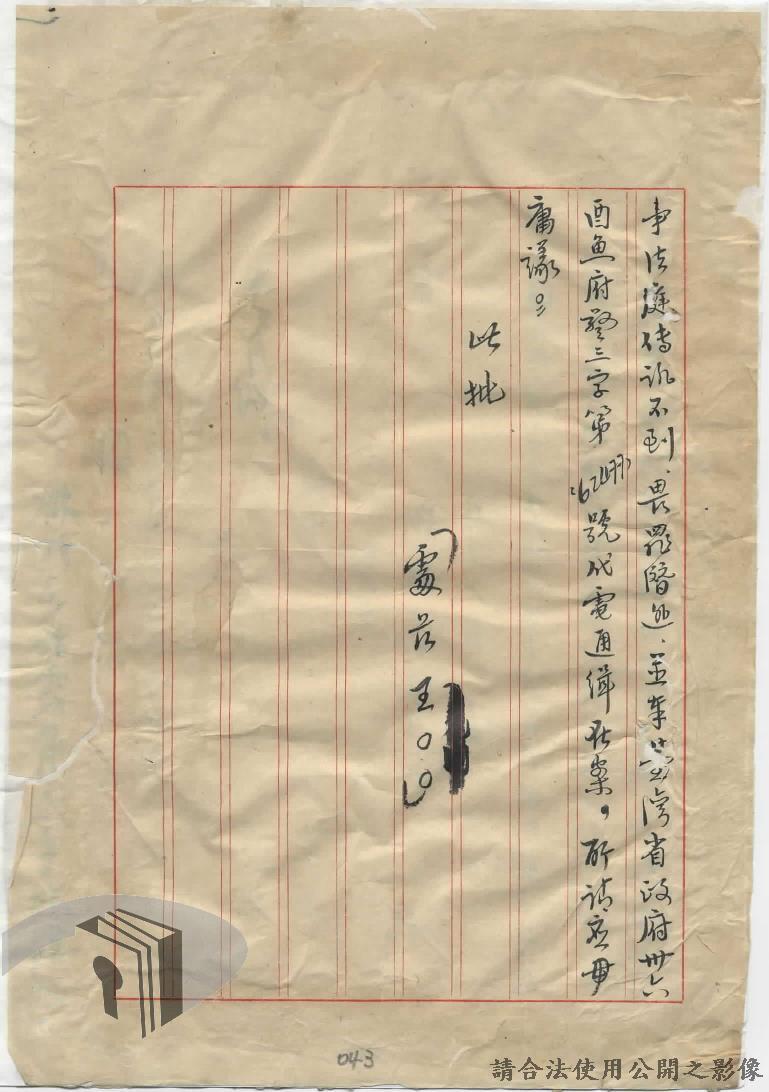 事法庭傳訊不到、畏罪潛逃、並奉臺灣省政府卅六
酉魚府警三字第號代電通緝在案。所請應毋
庸議。
此批
處長 王○○
043
請合法使用公開之影像